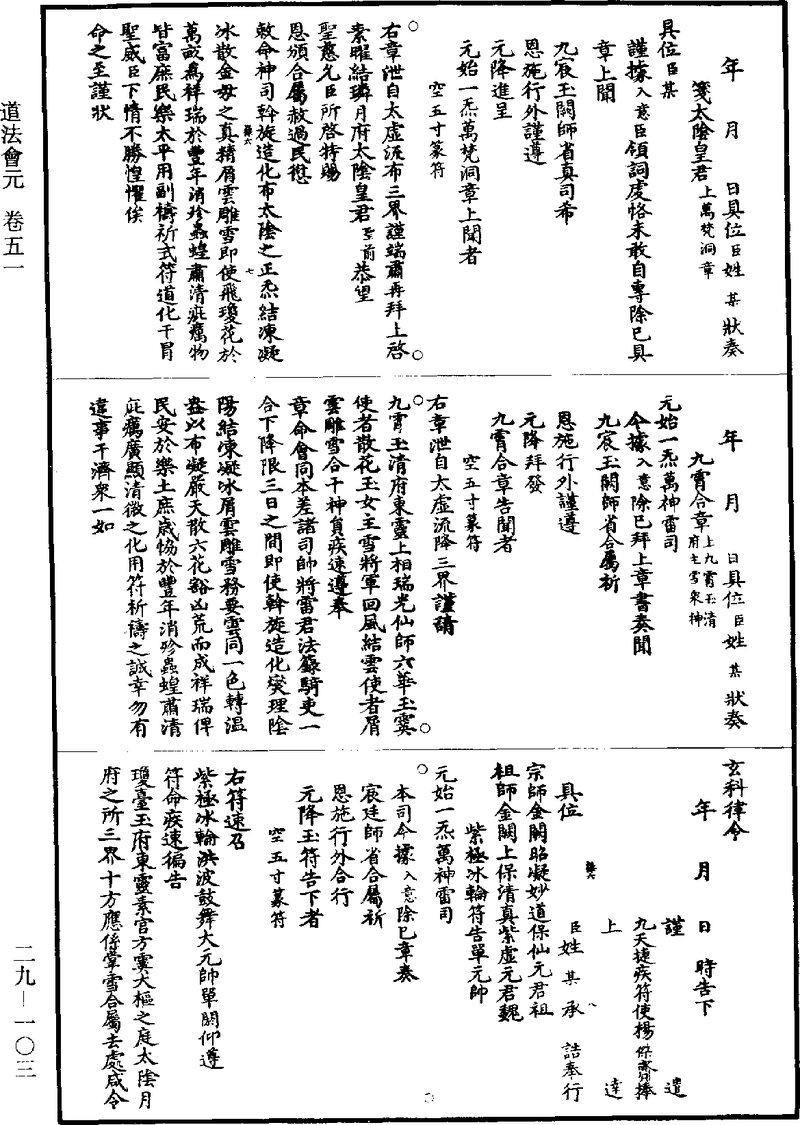 年　月　日具位臣姓某狀奏
箋太陰皇君上萬梵洞章
具位臣某
謹據入意臣領詞虔恪未敢自專除已具
章上聞
九宸玉闕師省真司希
恩施行外謹遵
元降進呈
元始一炁萬梵洞章上聞者
空五寸篆符
右章泄自太虛流布三界謹端肅再拜上啓
素曜結璘月府太陰皇君至前恭望
聖慈允臣所啓特賜
恩頒合屬赦過民愆
敕命神司斡旋造化布太陰之正炁結凍凝
冰散金母之真精屑雲雕雪即使飛瓊花於
萬畝薦祥瑞於豐年消殄蟲蝗肅清疵癘物
皆富庶民樂太平用副禱祈式符道化干冒
聖威臣下情不勝惶懼俟
命之至謹狀
年　月　日具位臣姓某狀奏
九霄合章上九霄玉清府主雪衆神
元始一炁萬神雷司
今據入意除已拜上章書奏聞
九宸玉闕師省合屬祈
恩施行外謹遵
元降拜發
九霄合章告聞者
空五寸篆符
右章泄自太虛流降三界謹請
九霄玉清府東靈上相瑞光仙師六華玉霙
使者散花玉女主雪將軍回風結雲使者屑
雲雕雪合干神員疾速遵奉
章命會同本差諸司帥將雷君法籙騎吏一
合下降限三日之間即使斡旋造化燮理陰
陽結凍凝冰屑雲雕雪務要雲同一色轉溫
盎以布凝嚴天散六花豁凶荒而成祥瑞俾
民安於樂土庶歲恊於豐年消殄蟲蝗肅清
疵癘廣顯清微之化用符祈禱之誠幸勿有
違事干濟衆一如
玄科律令
年　月　日　時告下
謹遣
九天捷疾符使楊傑齎捧
上達
具位　臣姓某承誥奉行
宗師金闕昭凝妙道保仙元君祖
祖師金闕上保清真紫虛元君魏
紫極冰輪符告單元帥
元始一炁萬神雷司
本司今據入意除已章奏
宸廷師省合屬祈
恩施行外合行
元降玉符告下者
空五寸篆符
右符速召
紫極冰輪洪波鼓舞大元帥單閼仰遵
符命疾速徧告
瓊臺玉府東靈素宮方霙大樞之庭太陰月
府之所三界十方應係掌雪合屬去處咸令
道法會元　卷五一
二九—一〇三